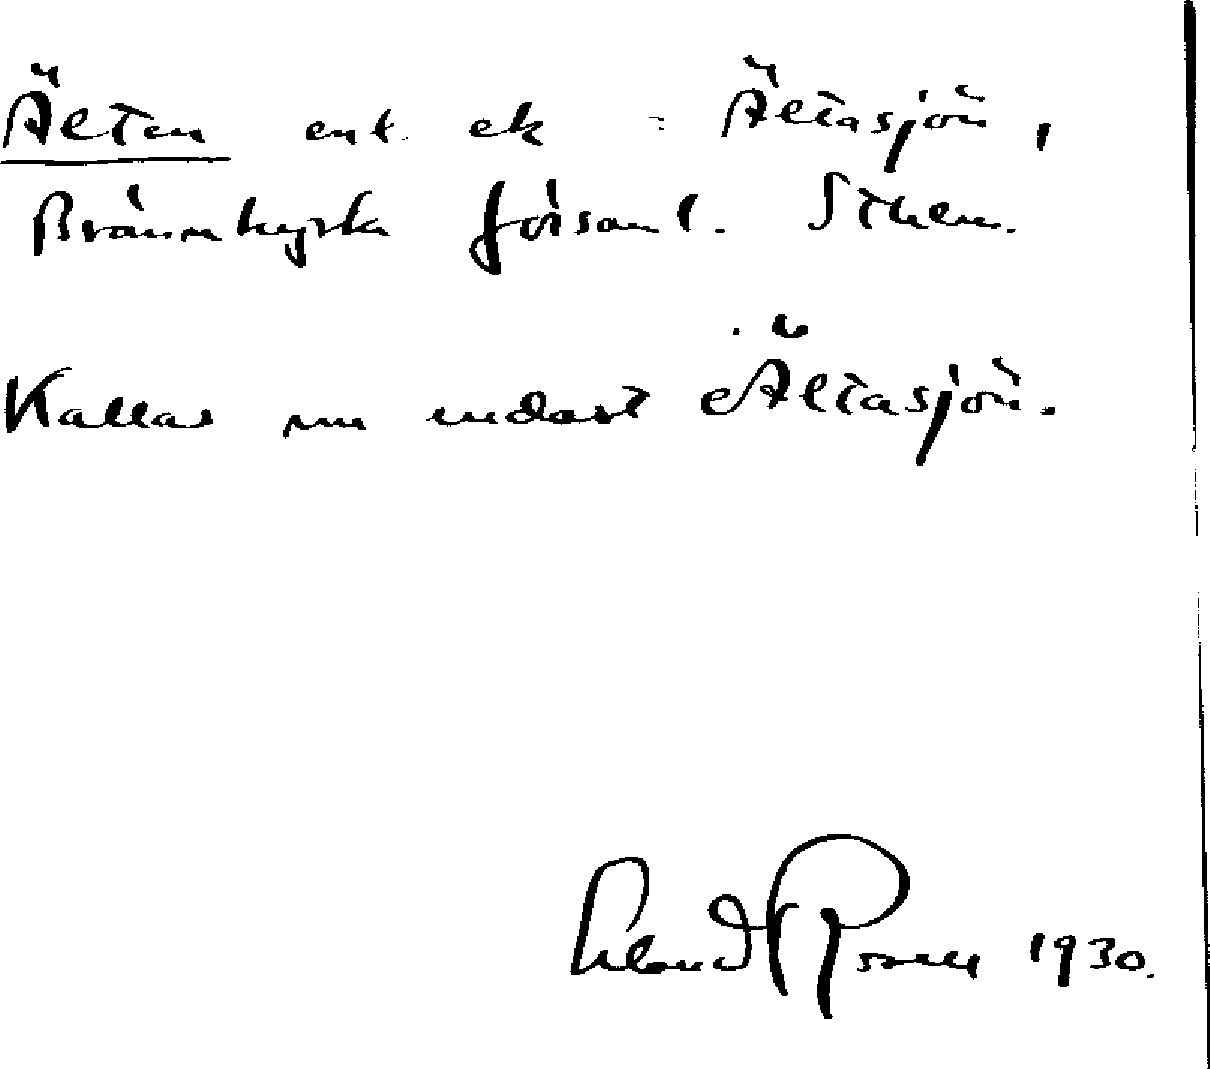 Älten enl. ek = Ältasjön,
Brännkyrka förssaml. Sthlm.
Kallas nu endast Ältasjön.
1930.